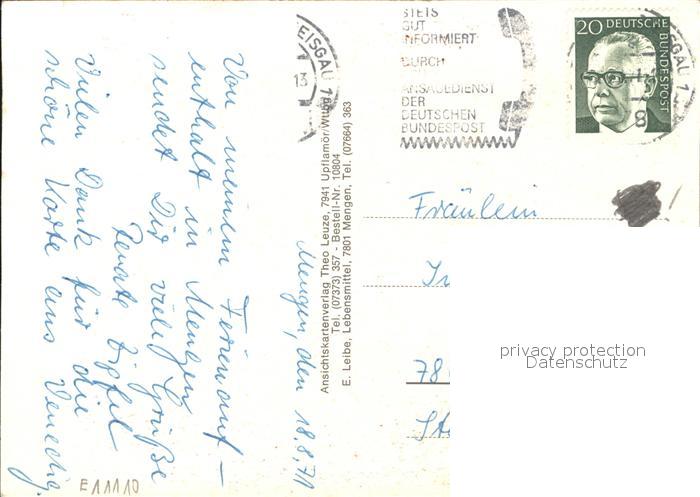 Mengen, den 18.8.71
Von meinem Ferienauf-
enthalt in Mengen
sendet Dir viele Grüße
Renate
Vielen Dank für die
schöne Karte aus Venedig.
E11110
Ansichtskartenverlag Theo Leuze, 7941 Upflamör/Württ.
Tel. (07373) 357 - Bestell-Nr. 10804
E. Leibe, Lebensmittel, 7801 Mengen, Tel. (07664) 363
EISGAU 1
13
STETS
GUT
INFORMIERT
DURCH
ANSAGEDIENST
DER
DEUTSCHEN
BUNDESPOST
20 DEUTSCHE
BUNDESPOST
SGAU 1
Fräulein
78
privacy protection
Datenschutz